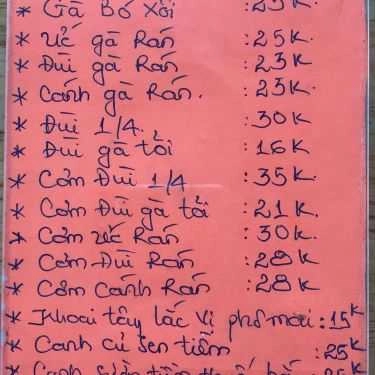 * Gà Bó Xôi :25K.
* Ức gà Rán :25K.
* Đùi gà Rán :23K
* Cánh gà Rán. :23K
* Đùi 1/4. :30K
* Đùi gà tỏi :16K
* Cơm Đùi 1/4 :35K.
* Cơm Đùi gà tỏi :21K.
* Cơm Ức Rán :30K.
* Cơm Đùi Rán :28K
* Cơm Cánh Rán :28K
* Khoai tây lắc vị phô mai :15K
* Canh củ sen tiềm :25K
* Canh